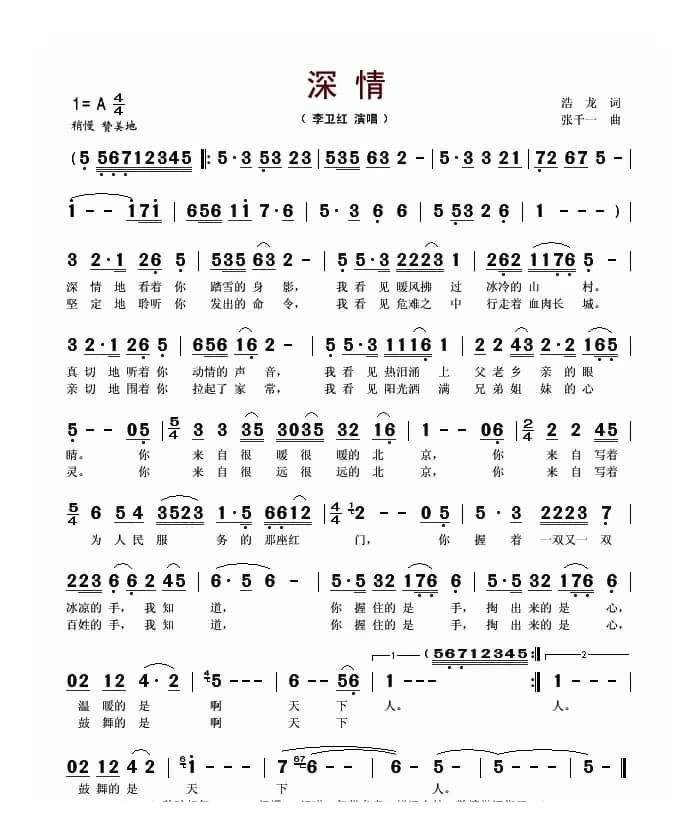 深情
（ 李卫红 演唱 ）
1= A 4/4
稍慢 赞美地
浩 龙 词
张千一 曲
( 5 56712345 ‖: 5·3 53 23 | 535 63 2 - | 5·3 3 21 | 72 67 5 - |
1 - - 171 | 656 11 7·6 | 5·3 6 6 | 5 53 2 6 | 1 - - ) |
3 2·1 26 5 | 535 63 2 - | 5 5·3 2223 1 | 262 1176 5 - |
深 情 地 看着 你 踏雪的 身 影， 我 看 见 暖风拂 过 冰冷的 山 村。
坚 定 地 聆听 你 发出的 命 令， 我 看 见 危难之 中 行走着 血肉长 城。
3 2·1 26 5 | 656 16 2 - | 5 5·3 1116 1 | 2 2 43 2·2 165 |
真 切 地 听着 你 动情的 声 音， 我 看 见 热泪涌 上 父 老 乡 亲 的 眼
亲 切 地 围着 你 拉起了 家 常， 我 看 见 阳光洒 满 兄 弟 姐 妹 的 心
5 - - 05 | 5/4 3 3 35 3035 32 16 | 1 - - 06 | 2/4 2 2 45 |
睛。 你 来 自 很 暖 很 暖的 北 京， 你 来 自 写着
灵。 你 来 自 很 远 很 远的 北 京， 你 来 自 写着
5/4 6 54 3523 1·5 6612 | 4/4 2 - - 05 | 5·3 2223 7 |
为 人 民 服 务 的 那座红 门， 你 握 着 一双又一 双
223 66 2 45 | 6·5 6 - | 5·5 32 176 6 | 5·5 32 176 6 |
冰凉的 手， 我 知 道， 你 握 住 的 是 手， 掏 出 来 的 是 心，
百姓的 手， 我 知 道， 你 握 住 的 是 手， 掏 出 来 的 是 心，
02 12 4·2 | 5 - - - | 6 - - 56 | 1 5 - - ( 56712345 :‖ 5 - - - :‖ 2 5 - - - |
温 暖的 是 啊 天 下 人。 人。
鼓 舞的 是 啊 天 下
02 12 4 2 | 1 - - 7 | 6 - - 6 | 5 - - - | 5 - - - ‖
鼓 舞的 是 天 下 人。